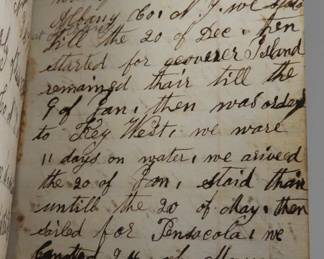 Albany Co. N.Y. we staid
till the 20 of Dec, then
started for governer Island
remained thair till the
9 of Jan, then was order
to Key West, we ware
11 days on water, we arived
the 20 of Jan, staid thair
untill the 20 of May, then
sailed for Pensacola, we
landed